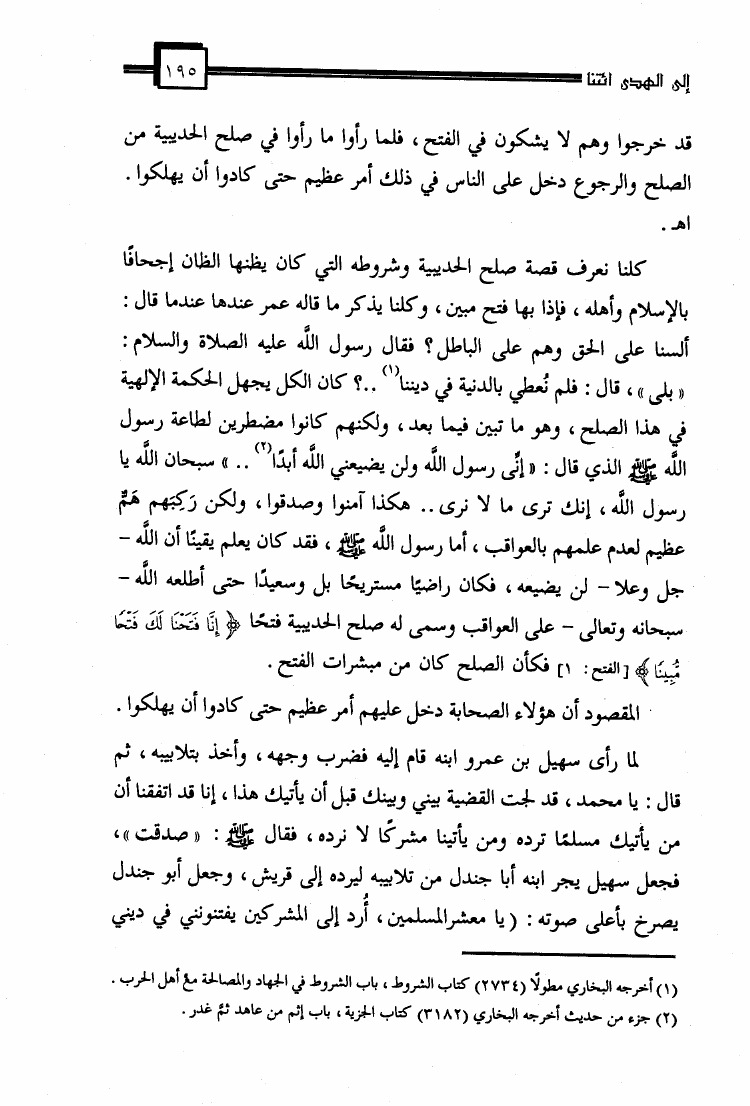 إلى الهدى ائتنا
١٩٥
قد خرجوا وهم لا يشكون في الفتح ، فلما رأوا ما رأوا في صلح الحديبية من
الصلح والرجوع دخل على الناس في ذلك أمر عظيم حتى كادوا أن يهلكوا .
اهـ .
كلنا نعرف قصة صلح الحديبية وشروطه التي كان يظنها الظان إجحافًا
بالإسلام وأهله ، فإذا بها فتح مبين ، وكلنا يذكر ما قاله عمر عندها عندما قال :
ألسنا على الحق وهم على الباطل ؟ فقال رسول اللَّه عليه الصلاة والسلام :
« بلى » ، قال : فلم نُعطي بالدنية في ديننا(١) ..؟ كان الكل يجهل الحكمة الإلهية
في هذا الصلح ، وهو ما تبين فيما بعد ، ولكنهم كانوا مضطرين لطاعة رسول
اللَّه ﷺ الذي قال : « إنِّى رسول اللَّه ولن يضيعني اللَّه أبدًا(٢) .. » سبحان اللَّه يا
رسول اللَّه ، إنك ترى ما لا نرى .. هكذا آمنوا وصدقوا ، ولكن رَكِبَهم هَمٌّ
عظيم لعدم علمهم بالعواقب ، أما رسول اللَّه ﷺ ، فقد كان يعلم يقينًا أن اللَّه –
جل وعلا – لن يضيعه ، فكان راضيًا مستريحًا بل وسعيدًا حتى أطلعه اللَّه –
سبحانه وتعالى – على العواقب وسمى له صلح الحديبية فتحًا ﴿ إِنَّا فَتَحْنَا لَكَ فَتْحًا
مُّبِينًا ﴾ [الفتح: ١] فكأن الصلح كان من مبشرات الفتح .
المقصود أن هؤلاء الصحابة دخل عليهم أمر عظيم حتى كادوا أن يهلكوا .
لما رأى سهيل بن عمرو ابنه قام إليه فضرب وجهه ، وأخذ بتلابيبه ، ثم
قال : يا محمد ، قد لجت القضية بيني وبينك قبل أن يأتيك هذا ، إنا قد اتفقنا أن
من يأتيك مسلمًا ترده ومن يأتينا مشركًا لا نرده ، فقال ﷺ : « صدقت » ،
فجعل سهيل يجر ابنه أبا جندل من تلابيبه ليرده إلى قريش ، وجعل أبو جندل
يصرخ بأعلى صوته : (يا معشرالمسلمين ، أُرد إلى المشركين يفتنونني في ديني
(١) أخرجه البخاري مطولًا (٢٧٣٤) كتاب الشروط ، باب الشروط في الجهاد والمصالحة مع أهل الحرب .
(٢) جزء من حديث أخرجه البخاري (٣١٨٢) كتاب الجزية ، باب إثم من عاهد ثمَّ غدر .